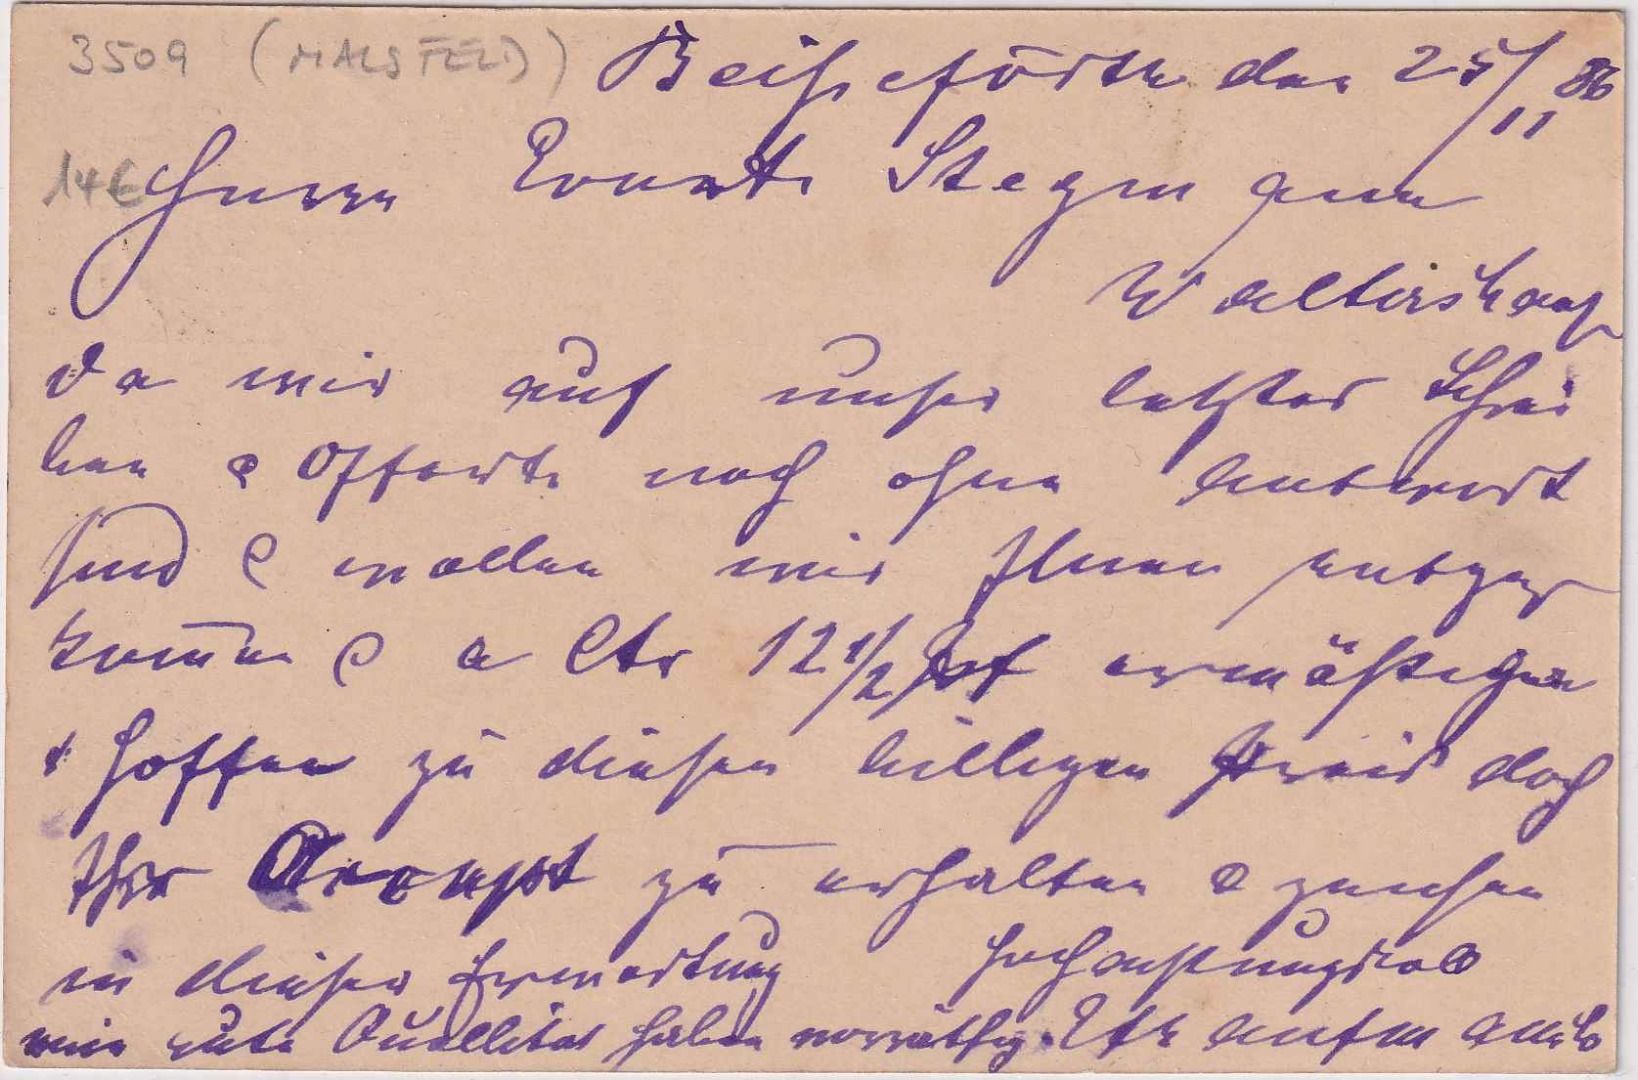 3509 (MALSFELD) Beiseförth den 25/11 86
14€ Herrn Stegmann
Waltershaus
Da wir auf unser letztes Schrei
ben & Offerte noch ohne Antwort
sind & wollen wir Ihnen entgegen
komen & a Ctr 12 1/2 Pf ermäßigen
& hoffen zu diesen billigen Preis doch
Ihr zu erhalten & zeichnen
in dieser Erwartung hochachtungsvoll
wir gute Quallität haben vorräthig.